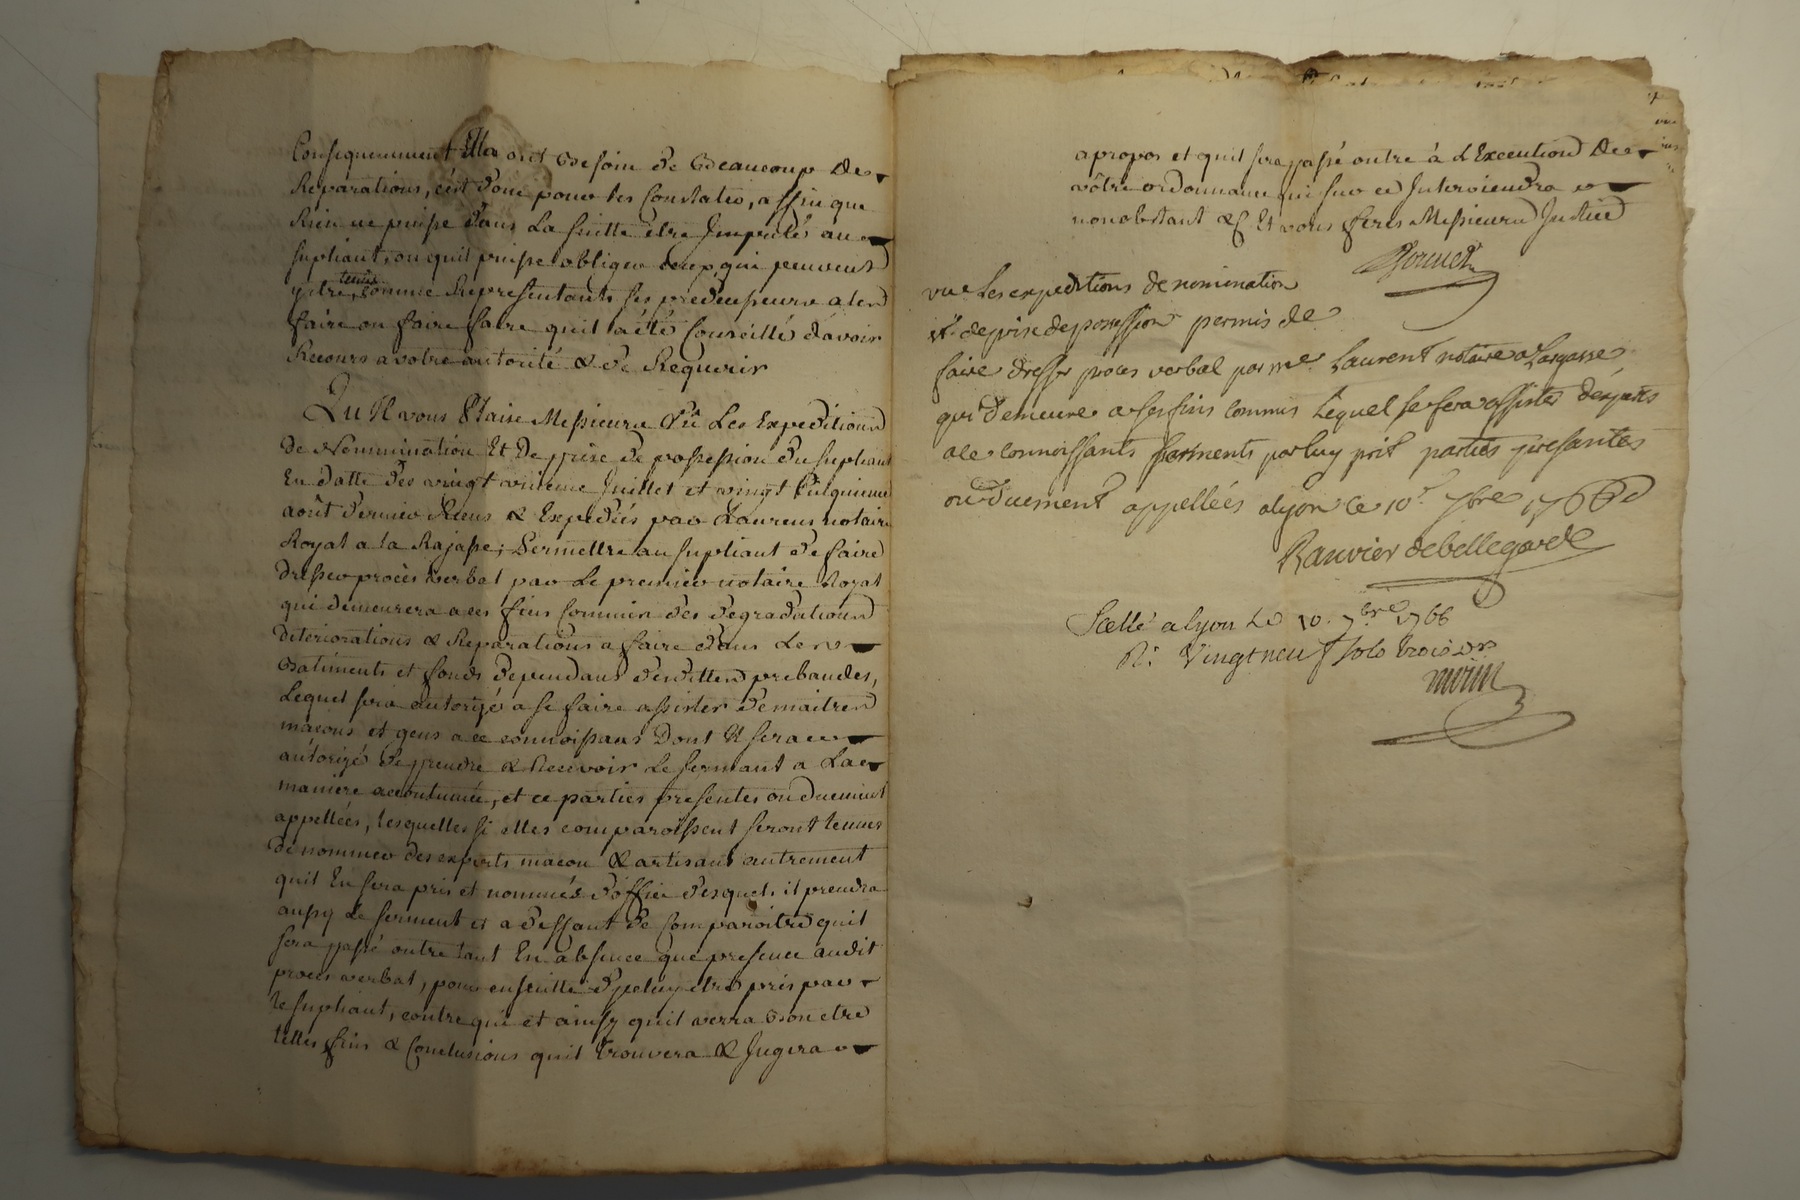 Consequemment Ella ont Besoin de Beaucoup des
Reparations, c'est donc pour les Constater, affin que
Rien ne puisse dans La suitte être Imputés au
supliant, ou quil puisse obliger ceux qui peuvent
y etre tenus comme Representants ses predecesseurs a les
faire ou faire faire quil a été Conseillé davoir
Recours a votre autorité & de Requerir
Qu'Il vous Plaise Messieurs Vû Les Expeditions
de Nommination Et De prise de possession du supliant
En datte des vingt unieme Juillet et vingt Cinquieme
août dernier Recus & Expediés par Laurens notaire
Royal a la Rajasse; Permettre au supliant de faire
dresser procès verbal par Le premier notaire Royal
qui demeurera a ces fins Commis des degradations
deteriorations & Reparations a faire dans Les
Batiments et fonds dependans desdittes prebandes,
Lequel sera autorizé a se faire assister de maitres
macons et gens a ce connoissans Dont Il sera
autorizé de prendre & Recevoir Le serment a La
maniere accoutumée, et ce parties presentes ou duement
appellées, lesquelles si elles comparoissent seront tenues
de nommer des experts macon & artisans autrement
quil En sera pris et nommés d'office desquels il prendra
aussy Le serment et a deffaut de Comparoitre quil
sera passé outre tant En absence que presence audit
procès verbal, pour ensuitte d'yceluy etre pris par
le supliant, contre qui et ainsy quil verra Bon etre
telles fins & Conclusions quil trouvera & Jugera
apropos et quil sera passé outre à L'Execution De
vôtre ordonnance qui sur ce Interviendra
nonobstant &c Et vous ferés Messieurs Justice
vue Les expeditions de nomination
et de prise de possession permis de
faire dresser proces verbal par me Laurent notaire a Largasse
qui demeure a ses fins commis Lequel se fera assister d'experts
a ce connoissants serments par luy prit parties presantes
ou duement appellées a lyon ce 10e 7bre 1766
Ranvier de bellegarde
Scellé a lyon Le 10 7bre 1766
R: Vingt neuf sols trois drs
morin